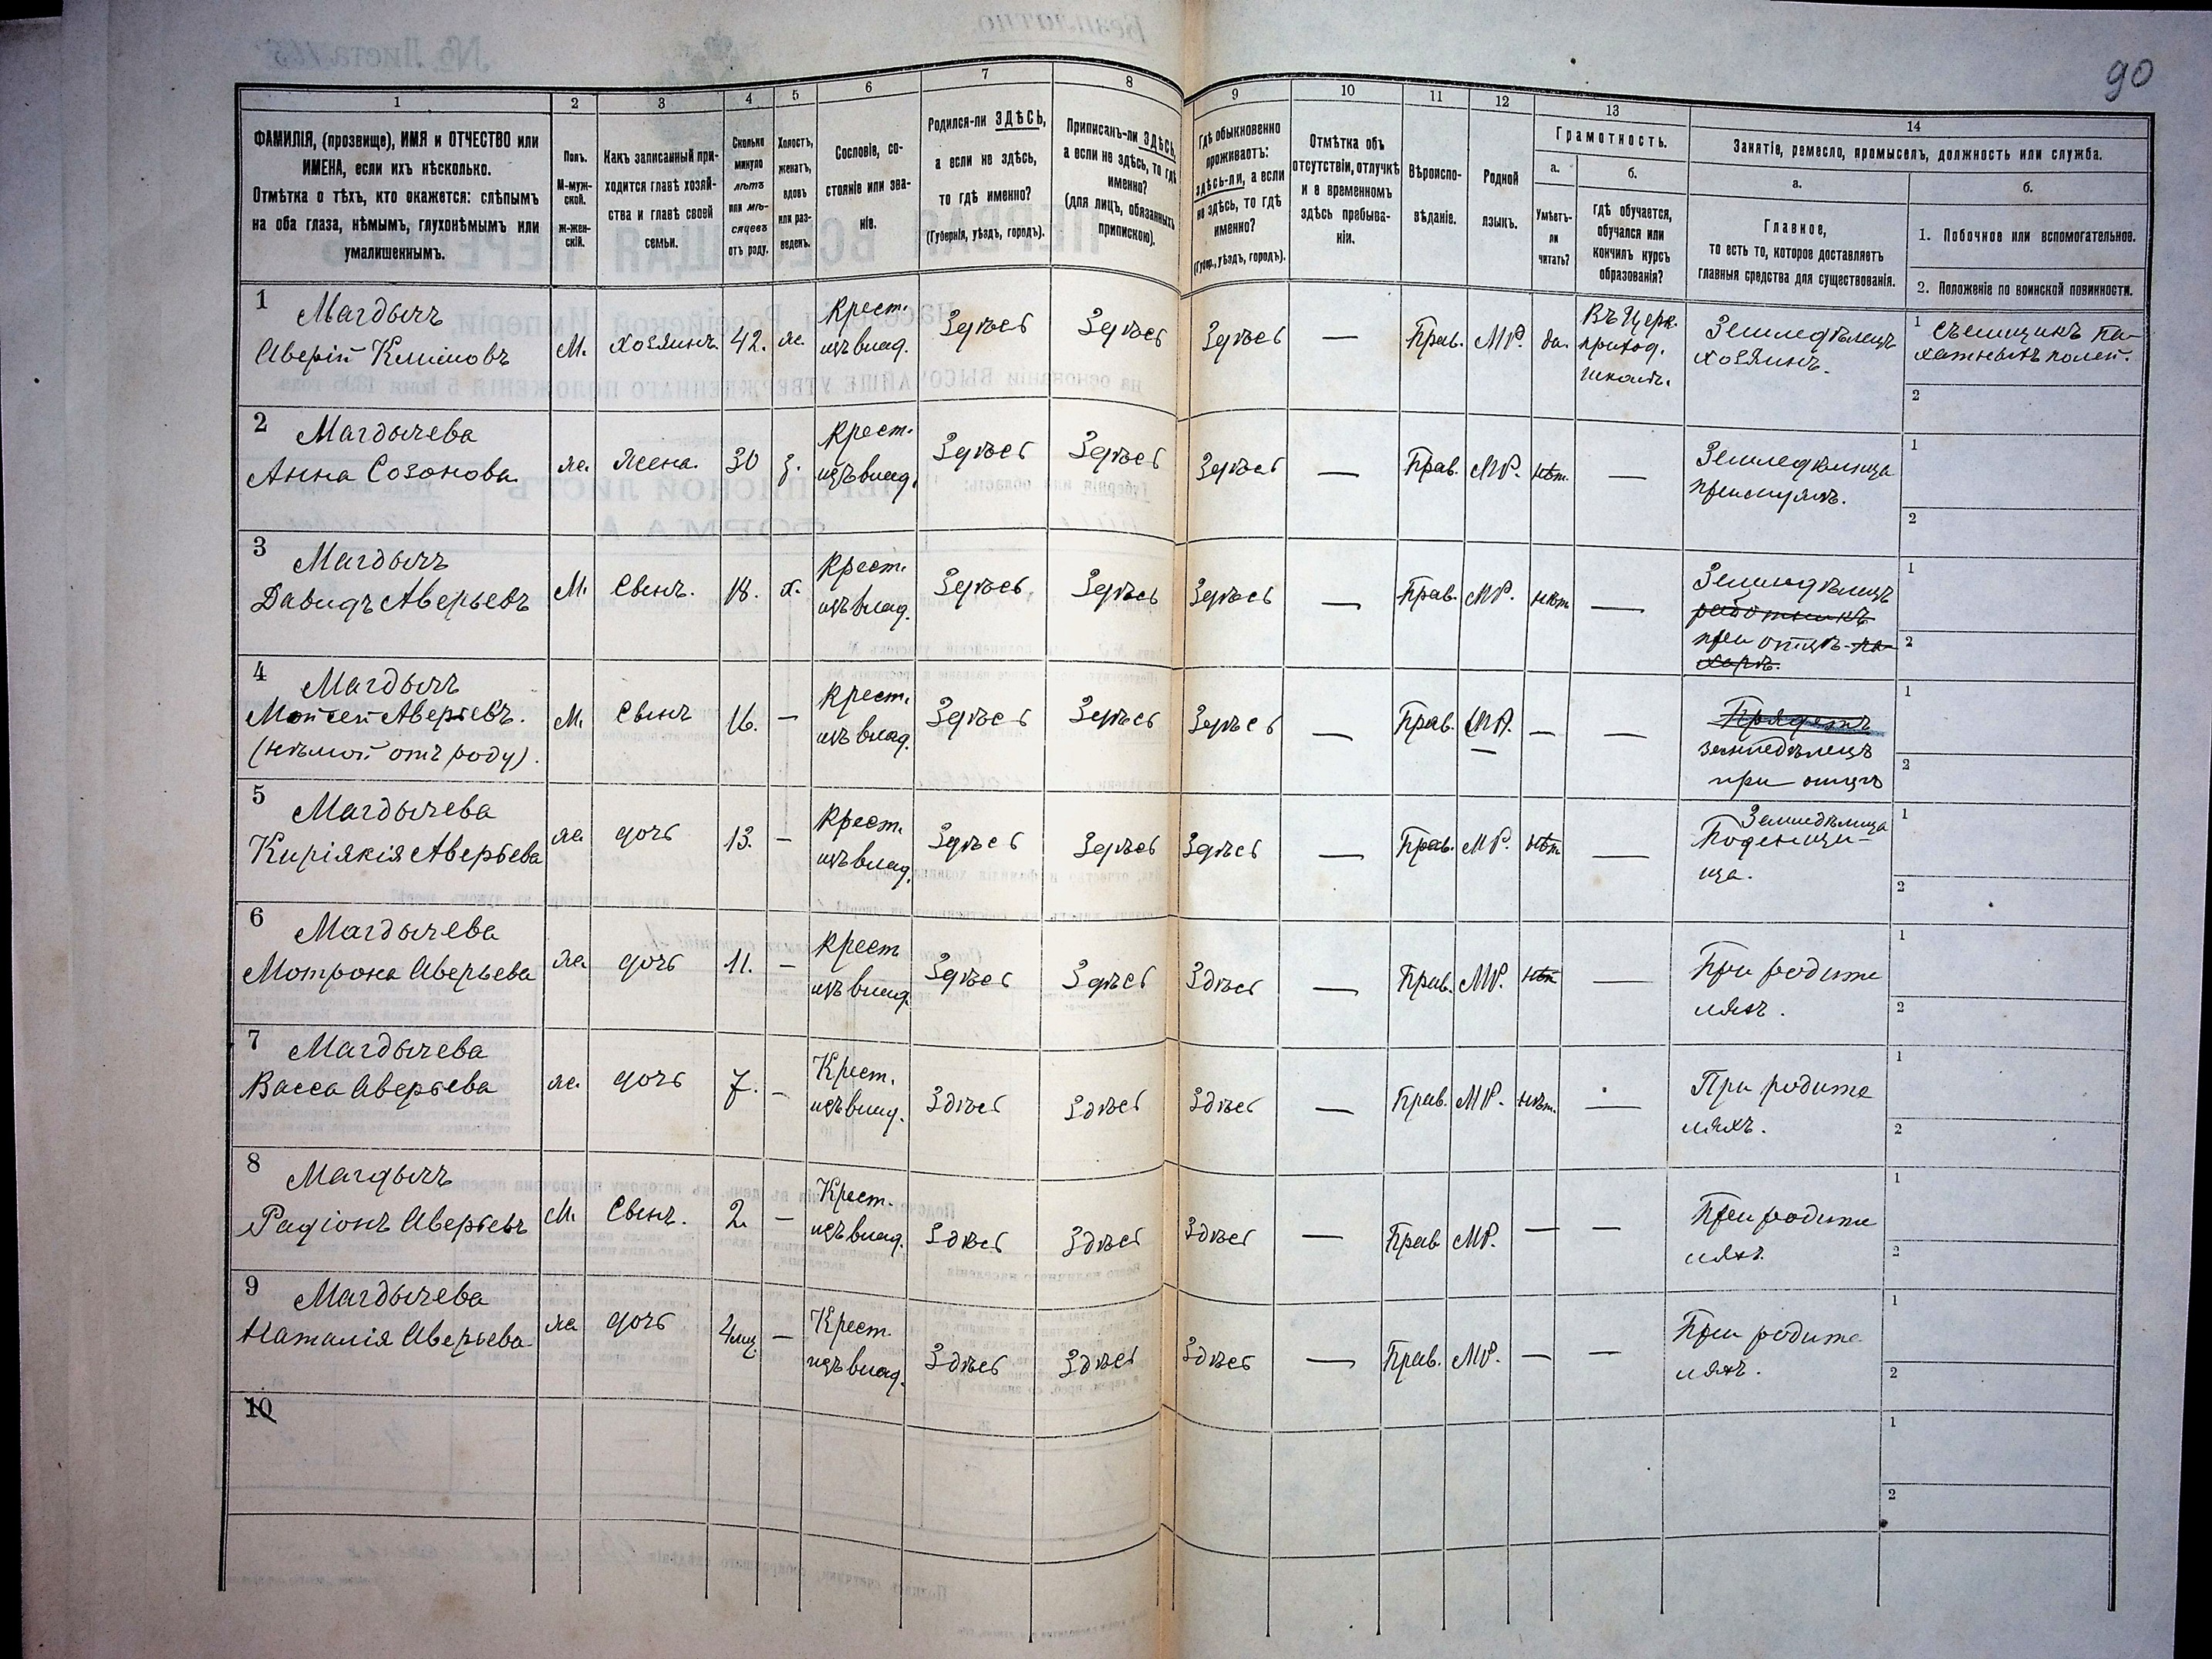 90
1 2 3 4 5 6 7 8 9 10 11 12 13 14
ФАМИЛІЯ, (прозвище), ИМЯ и ОТЧЕСТВО или
ИМЕНА, если ихъ нѣсколько.
Отмѣтка о тѣхъ, кто окажется: слѣпымъ
на оба глаза, нѣмымъ, глухонѣмымъ или
умалишеннымъ.
Полъ.
М-муж-
ской.
ж-жен-
скій.
Какъ записанный при-
ходится главѣ хозяй-
ства и главѣ своей
семьи.
Сколько
минуло
лѣтъ
или мѣ-
сяцевъ
отъ роду.
Холостъ,
женатъ,
вдовъ
или раз-
веденъ.
Сословіе, со-
стояніе или зва-
ніе.
Родился-ли ЗДѢСЬ,
а если не здѣсь,
то гдѣ именно?
(Губернія, уѣздъ, городъ).
Приписанъ-ли ЗДѢСЬ,
а если не здѣсь, то гдѣ
именно?
(для лицъ, обязанныхъ
припискою).
Гдѣ обыкновенно
проживаетъ:
здѣсь-ли, а если
не здѣсь, то гдѣ
именно?
(Губер., уѣздъ, городъ).
Отмѣтка объ
отсутствіи, отлучкѣ
и о временномъ
здѣсь пребыва-
ніи.
Вѣроиспо-
вѣданіе.
Родной
языкъ.
Грамотность.
а.
Умѣетъ-
ли
читать?
б.
Гдѣ обучается,
обучался или
кончилъ курсъ
образованія?
Занятіе, ремесло, промыселъ, должность или служба.
а.
Главное,
то есть то, которое доставляетъ
главныя средства для существованія.
б.
1. Побочное или вспомогательное.
2. Положеніе по воинской повинности.
1 Магдычъ
Аверій Климовъ
М. хозяинъ. 42. ж.
Крест.
изъ влад.
Здѣсь Здѣсь Здѣсь — Прав. МР. да.
Въ Церк.
приход.
школѣ.
Земледѣлецъ
хозяинъ.
1 Съемщикъ па-
хатныхъ полей.
2
2 Магдычева
Анна Созонова.
ж. жена. 30 з.
Крест.
изъ влад.
Здѣсь Здѣсь Здѣсь — Прав. МР. нѣт. —
Земледѣлица
при мужѣ.
1
2
3 Магдычъ
Давидъ Аверьевъ
М. Сынъ. 18. х.
Крест.
изъ влад.
Здѣсь Здѣсь Здѣсь — Прав. МР. нѣт —
Земледѣлецъ
работникъ
при отцѣ па-
харь.
1
2
4 Магдычъ
Мойсей Аверьевъ.
(нѣмой отъ роду).
М. Сынъ 16. —
Крест.
изъ влад.
Здѣсь Здѣсь Здѣсь — Прав. МР. — —
земледѣлецъ
при отцѣ
1
2
5 Магдычева
Киріякія Аверьева
ж. дочь 13. —
Крест.
изъ влад.
Здѣсь Здѣсь Здѣсь — Прав. МР. нѣт —
Земледѣлица
Поденщи-
ца.
1
2
6 Магдычева
Мотрона Аверьева
ж. дочь 11. —
Крест
изъ влад.
Здѣсь Здѣсь Здѣсь — Прав. МР. нѣт —
При родите
ляхъ.
1
2
7 Магдычева
Васса Аверьева
ж. дочь 7. —
Крест.
изъ влад.
Здѣсь Здѣсь Здѣсь — Прав. МР. нѣт. —
При родите
ляхъ.
1
2
8 Магдычъ
Радіонъ Аверьевъ
М. Сынъ. 2. —
Крест.
изъ влад.
Здѣсь Здѣсь Здѣсь — Прав МР. — —
При родите
ляхъ.
1
2
9 Магдычева
Наталія Аверьева
жа дочь 4 мц. —
Крест.
изъ влад.
Здѣсь Здѣсь Здѣсь — Прав. МР. — —
При родите
ляхъ.
1
2
10
1
2